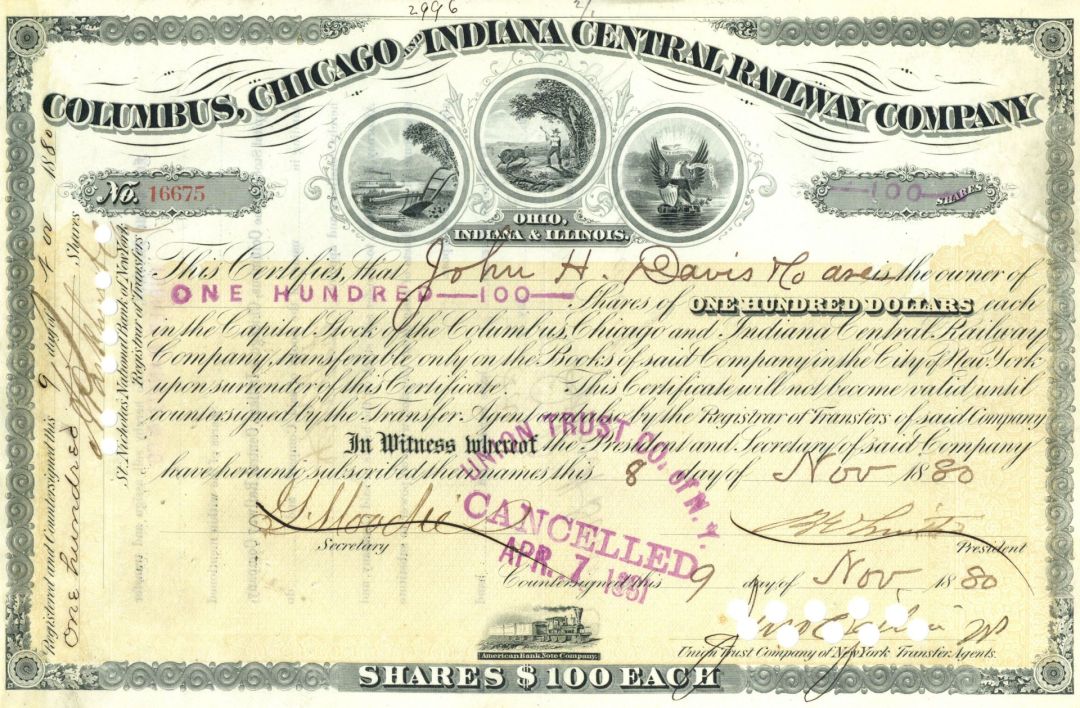 2996
COLUMBUS, CHICAGO AND INDIANA CENTRAL RAILWAY COMPANY
No. 16675
—100— SHARES
OHIO,
INDIANA & ILLINOIS.
This Certifies, that John H. Davis & Co are is the owner of
ONE HUNDRED—100— Shares of ONE HUNDRED DOLLARS each
in the Capital Stock of the Columbus, Chicago and Indiana Central Railway
Company, transferable only on the Books of said Company in the City of New York
upon surrender of this Certificate. This Certificate will not become valid until
countersigned by the Transfer Agent and also by the Registrar of Transfers of said Company
In Witness whereof the President and Secretary of said Company
have hereunto subscribed their names this 8 day of Nov 1880
Secretary
President
Countersigned this 9 day of Nov 1880
Union Trust Company of New York Transfer Agents.
UNION TRUST CO. OF N.Y.
CANCELLED
APR. 7 1881
American Bank Note Company.
SHARES $100 EACH
Registered and Countersigned this 9 day of Nov 1880
One hundred Shares
St. Nicholas National Bank of New York
Registrar of Transfers